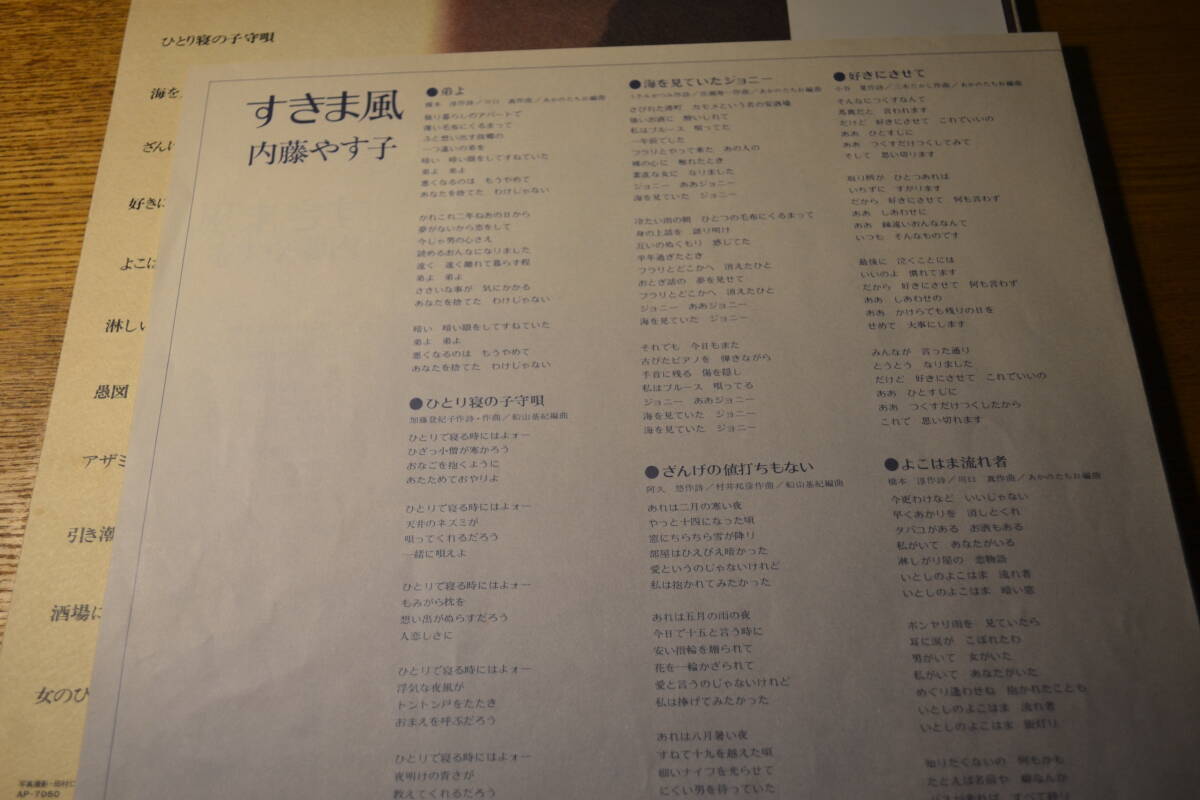 ひとり寝の子守唄
海を
ざんげ
好きに
よこは
淋しい
愚図
アザミ
引き潮
酒場に
女のひ
AP-7060
すきま風
内藤やす子
●弟よ
橋本 淳作詩/川口 真作曲/あかのたちお編曲
独り暮らしのアパートで
薄い毛布にくるまって
ふと想い出す故郷の
一つ違いの弟を
暗い 暗い眼をしてすねていた
弟よ 弟よ
悪くなるのは もうやめて
あなたを捨てた わけじゃない
かれこれ二年ねあの日から
夢がないから恋をして
今じゃ男の心さえ
読めるおんなになりました
遠く 遠く離れて暮らす程
弟よ 弟よ
ささいな事が 気にかかる
あなたを捨てた わけじゃない
暗い 暗い眼をしてすねていた
弟よ 弟よ
悪くなるのは もうやめて
あなたを捨てた わけじゃない
●ひとり寝の子守唄
加藤登紀子作詩・作曲/船山基紀編曲
ひとりで寝る時にはよォー
ひざっ小僧が寒かろう
おなごを抱くように
あたためておやりよ
ひとりで寝る時にはよォー
天井のネズミが
唄ってくれるだろう
一緒に唄えよ
ひとりで寝る時にはよォー
もみがら枕を
想い出がぬらすだろう
人恋しさに
ひとりで寝る時にはよォー
浮気な夜風が
トントン戸をたたき
おまえを呼ぶだろう
ひとりで寝る時にはよォー
夜明けの青さが
教えてくれるだろう
●海を見ていたジョニー
さびれた港町 カモメという名の安酒場
強いお酒に 酔いしれて
私はブルース 唄ってた
一年前でした
フラリとやって来た あの人の
裸の心に 触れたとき
素直な女に なりました
ジョニー ああジョニー
海を見ていた ジョニー
冷たい雨の朝 ひとつの毛布にくるまって
身の上話を 語り明け
互いのぬくもり 感じてた
半年過ぎたとき
フラリとどこかへ 消えたひと
おとぎ話の 夢を見せて
フラリとどこかへ 消えたひと
ジョニー ああジョニー
海を見ていた ジョニー
それでも 今日もまた
古びたピアノを 弾きながら
手首に残る 傷を隠し
私はブルース 唄ってる
ジョニー ああジョニー
海を見ていた ジョニー
海を見ていた ジョニー
●ざんげの値打ちもない
阿久 悠作詩/村井邦彦作曲/船山基紀編曲
あれは二月の寒い夜
やっと十四になった頃
窓にちらちら雪が降り
部屋はひえびえ暗かった
愛というのじゃないけれど
私は抱かれてみたかった
あれは五月の雨の夜
今日で十五と言う時に
安い指輪を贈られて
花を一輪かざられて
愛と言うのじゃないけれど
私は捧げてみたかった
あれは八月暑い夜
すねて十九を越えた頃
細いナイフを光らせて
にくい男を待っていた
●好きにさせて
小谷 夏作詩/三木たかし作曲/あかのたちお編曲
そんなにつくすなんて
馬鹿だと 言われます
だけど 好きにさせて これでいいの
ああ ひとすじに
ああ つくすだけつくしてみて
そして 思い切ります
取り柄が ひとつあれば
いちずに すがります
だから 好きにさせて 何も言わず
ああ しあわせに
ああ 縁遠いおんななんて
いつも そんなものです
最後に 泣くことには
いいのよ 慣れてます
だから 好きにさせて 何も言わず
ああ しあわせの
ああ かけらでも残りの日を
せめて 大事にします
みんなが 言った通り
とうとう なりました
だけど 好きにさせて これでいいの
ああ ひとすじに
ああ つくすだけつくしたから
これで 思い切れます
●よこはま流れ者
橋本 淳作詩/川口 真作曲/あかのたちお編曲
今更わけなど いいじゃない
早くあかりを 消しとくれ
タバコがある お酒もある
私がいて あなたがいる
淋しがり屋の 恋物語
いとしのよこはま 流れ者
いとしのよこはま 暗い窓
ボンヤリ雨を 見ていたら
耳に涙が こぼれたわ
男がいて 女がいた
私がいて あなたがいた
めぐり逢わせね 抱かれたことも
いとしのよこはま 流れ者
いとしのよこはま 街灯り
知りたくないの 何もかも
たとえば名前や 癖なんか